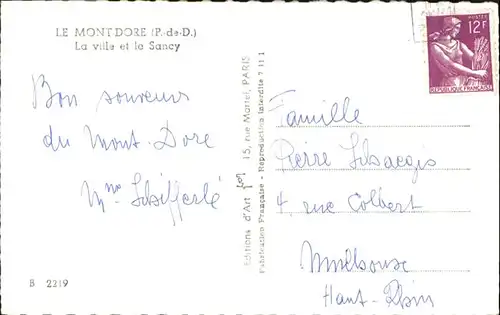 LE MONT DORE (P.-de-D.)
La ville et le Sancy
Bon souvenir
du Mont-Dore
Mme Schifferlé
B 2219
Editions d'Art 15, rue Martel, PARIS
Fabrication Française - Reproduction interdite 7 11 1
POSTES
12F
REPUBLIQUE FRANÇAISE
Famille
Pierre
4, rue Colbert
Mulhouse
Haut-Rhin